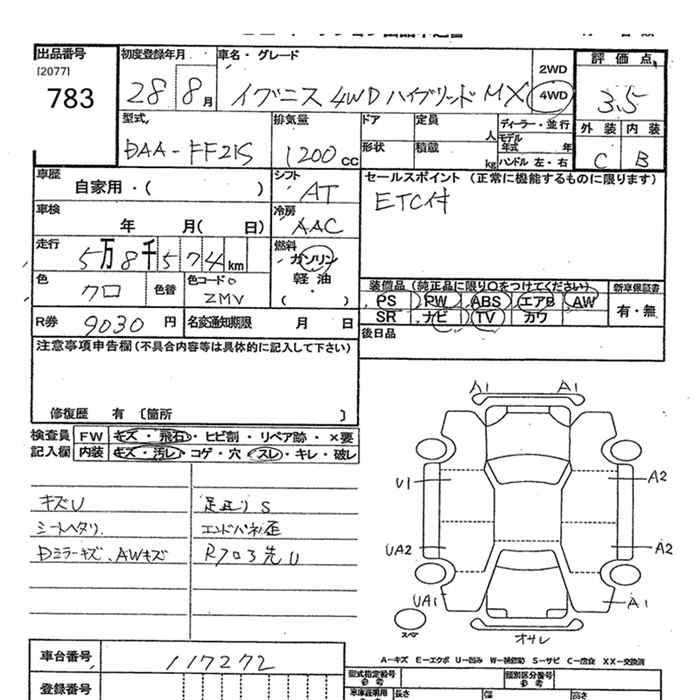 出品番号 初度登録年月 車名・グレード 評価点
[2077]
783
28 8月 イグニス 4WD ハイブリッド MX 2WD 4WD 3.5
型式 排気量 ドア 定員 人 ディーラー・並行 外装 内装
DAA-FF21S 1200cc 形状 積蔵 kg モデル年式 年 ハンドル 左・右 C B
車歴 自家用・( ) シフト AT セールスポイント (正常に機能するものに限ります)
ETC付
車検 年 月( 日) 冷房 AAC
走行 5万8千574km 燃料 ガソリン 軽油 ・( )
色 クロ 色替 色コードNo ZMV 装備品 (純正品に限り○をつけてください) 新車保証書
PS PW ABS エアB AW 有・無
R券 9030円 名変通知期限 月 日 SR ナビ TV カワ
注意事項申告欄 (不具合内容等は具体的に記入して下さい) 後日品
修復歴 有 〔箇所 〕
検査員 FW キズ・飛石・ヒビ割・リペア跡・×要
記入欄 内装 キズ・汚レ・コゲ・穴・スレ・キレ・破レ
A1 A1
キズU
シートヘタリ
Dミラーキズ、AWキズ
エンドパネル歪
U1 A2
UA2 A2
UA1 A1
スペア オサレ
A-キズ E-エクボ U-凹み W-補修跡 S-サビ C-腐食 XX-交換済
車台番号 117272
型式指定番号 類別区分番号
参考 参考
登録番号 長さ 幅 高さ